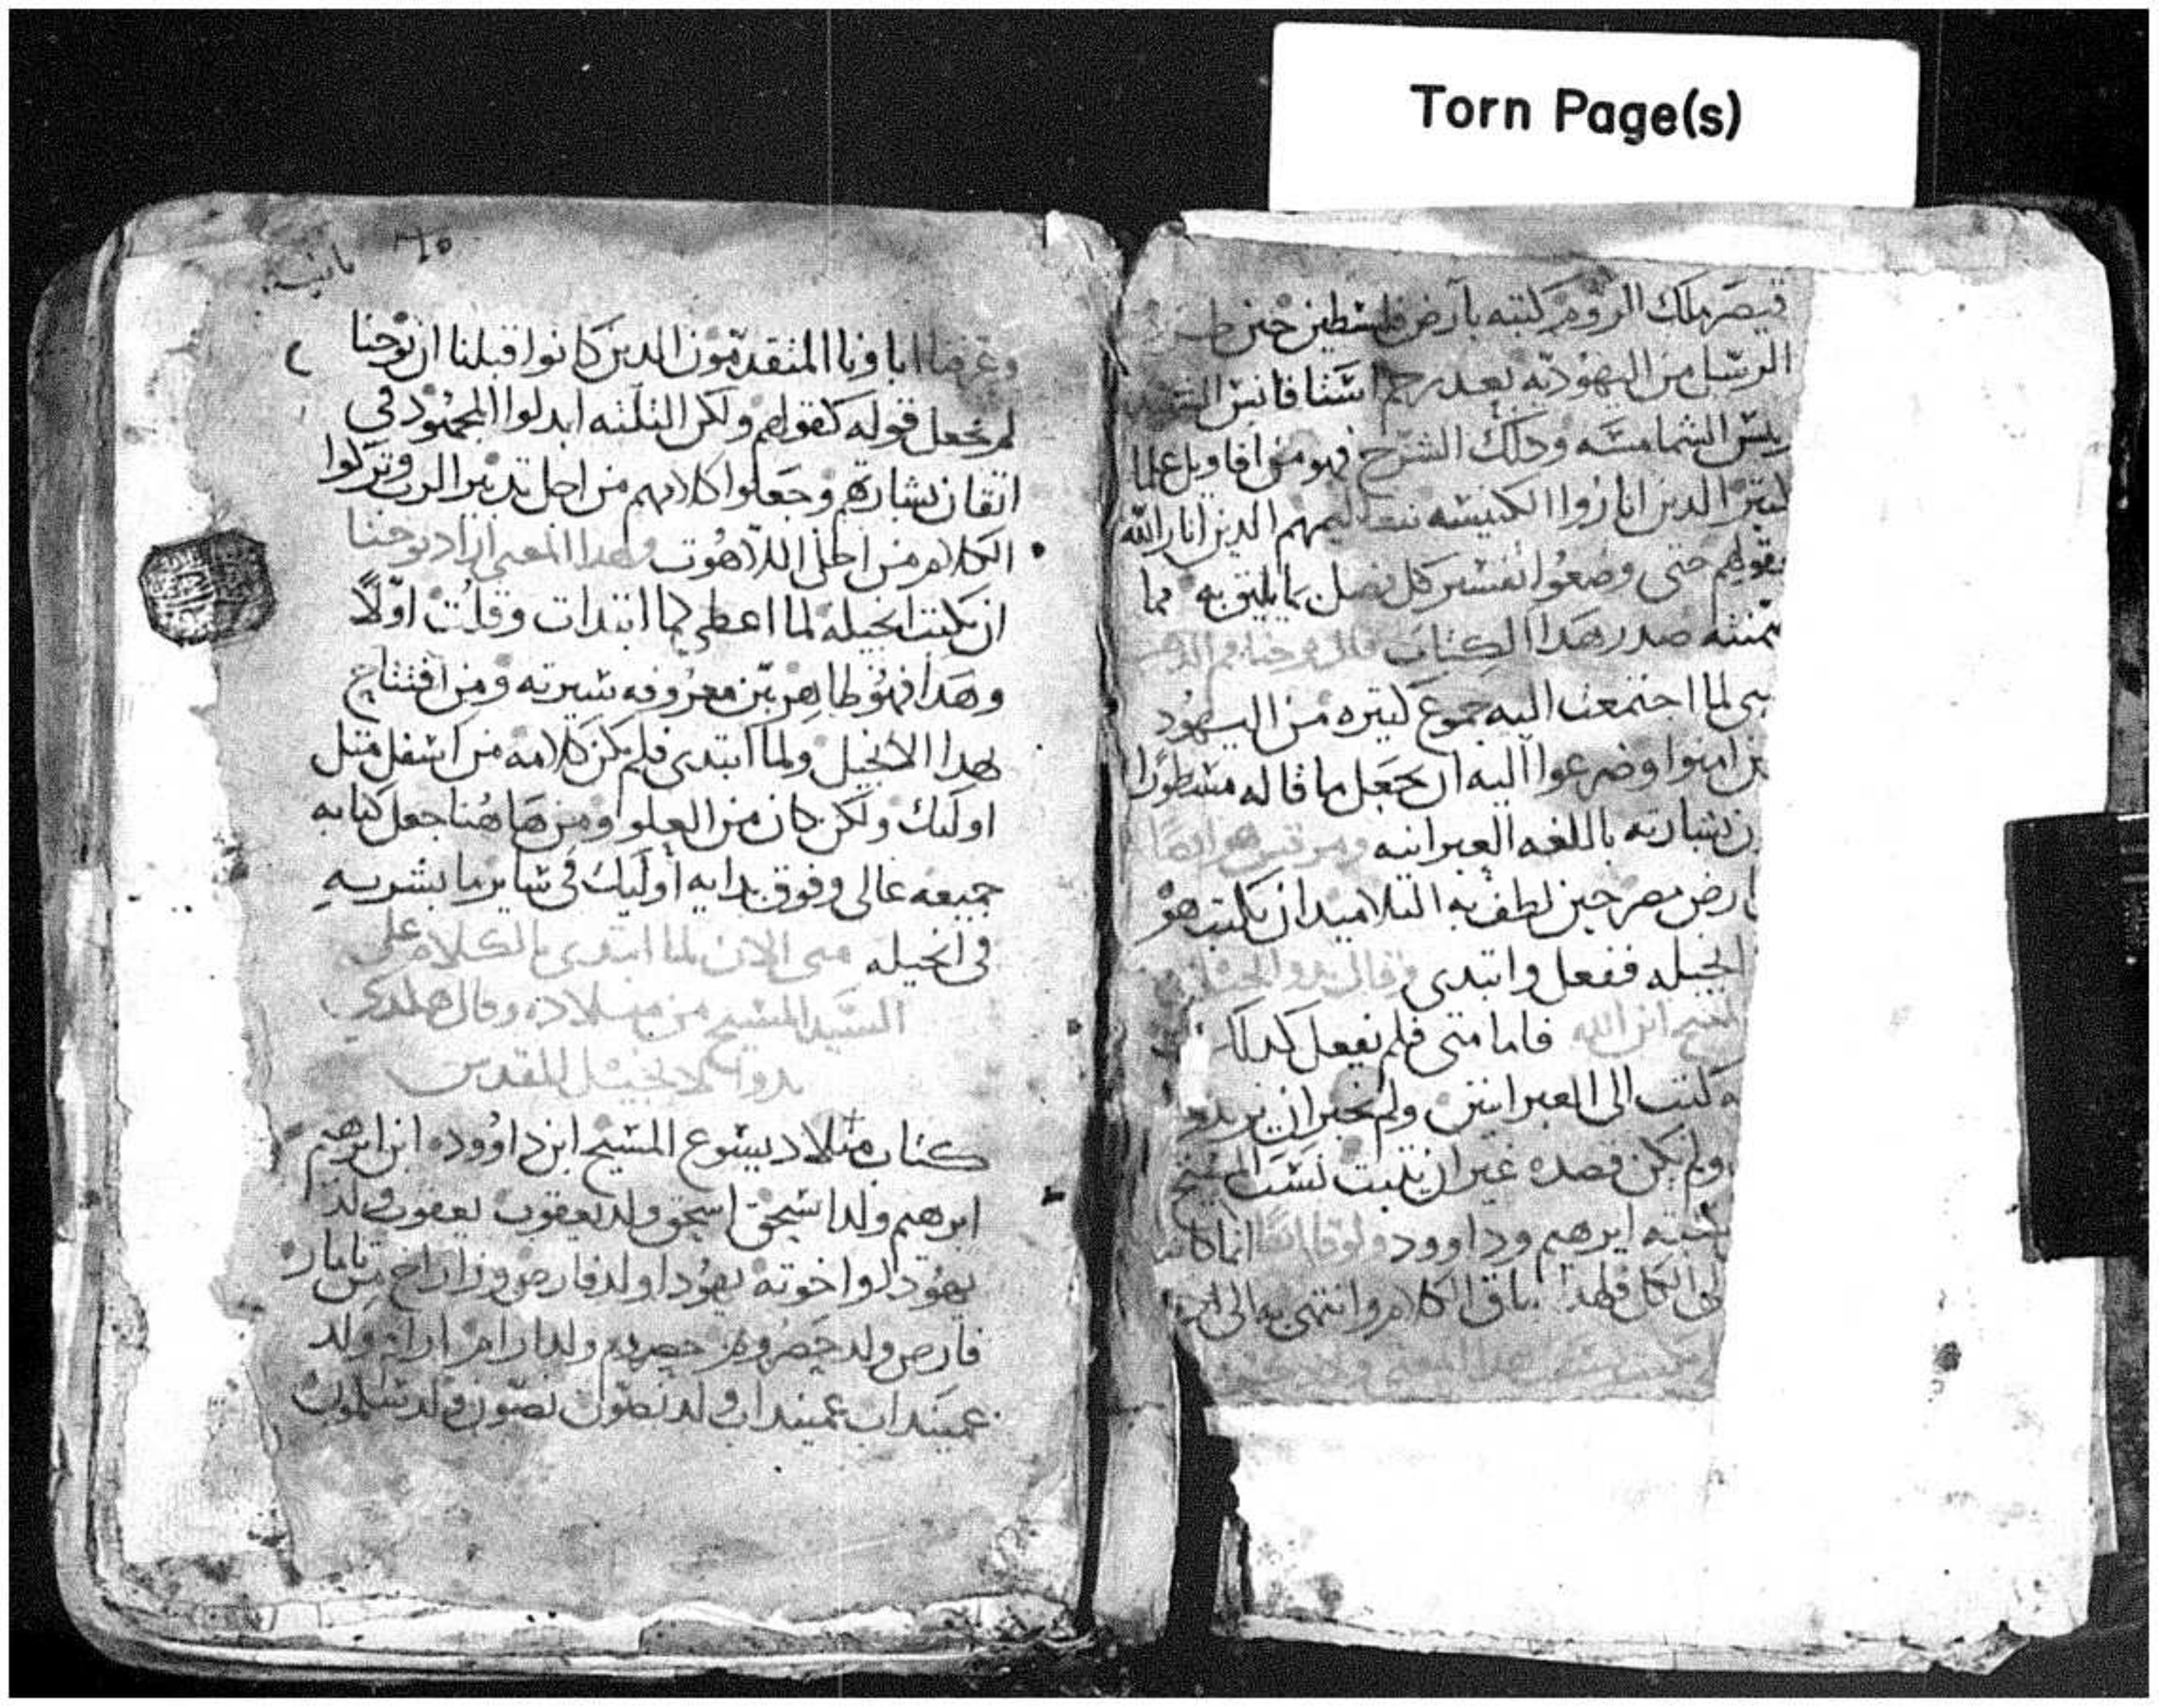 Torn Page(s)
قيصر ملك الروم كتبه بارض فلسطين حين
الرسل من اليهوديه بعد رجم اسثتافانس
ريس الشمامسه وحلك الشرح فهو من اقاويل علما
الدين اناروا الكنيسه بتعاليمهم الدين انار الله
عقولهم حتى وضعوا تفسير كل فصل بما يليق به مما
صدر هدا الكتاب قال يوحنا فم الدهب
متى لما اجتمعت اليه جموع كتيره من اليهود
امنوا وضرعوا اليه ان يجعل ما قاله مسطورا
بشارته باللغه العبرانيه ومرقس هو ايضا
ارض مصر حين لطف به التلاميد ان يكتب هو
انجيله ففعل وابتدى وقال بدو انجيل
المسيح ابن الله فاما متى فلم يفعل كدلك
وكتب الى العبرانيين ولم يخبر ان يزيد
ولم يكن قصده غير ان يثبت نسب المسيح
ابرهيم وداوود ولوقا ايضا انما كان
الى الكل فلهدا ساق الكلام وانتهى به الى ادم
هدا المعنى
وعرفنا اباونا المتقدمون الدين كانوا قبلنا ان يوحنا
لم يجعل قوله كقولهم ولكن التلته ابدلوا المجهود في
اتقان بشارتهم وجعلوا كلامهم من اجل تدبير الرب وتركوا
الكلام من اجل اللاهوت ولهدا المعنى اراد يوحنا
ان يكتب انجيله لما اعطي كما ابتدات وقلت اولا
وهدا فهو ظاهر بين معروفه سيرته ومن افتتاح
هدا الانجيل ولما ابتدى فلم يكن كلامه من اسفل متل
اوليك ولكن كان من العلو ومن هاهنا جعل كتابه
جميعه عالي وفوق بدايه اوليك في ساير ما بشر به
في انجيله متى الان لما ابتدى بالكلام على
السيد المسيح من ميلاده وقال هكدى
بدو الانجيل المقدس
كتاب ميلاد يسوع المسيح ابن داوود ابن ابرهيم
ابرهيم ولد اسحق اسحق ولد يعقوب يعقوب ولد
يهودا واخوته يهودا ولد فارص وزاراح من تامار
فارص ولد حصروم حصروم ولد ارام ارام ولد
عميناداب عميناداب ولد نصون نصون ولد سلمون